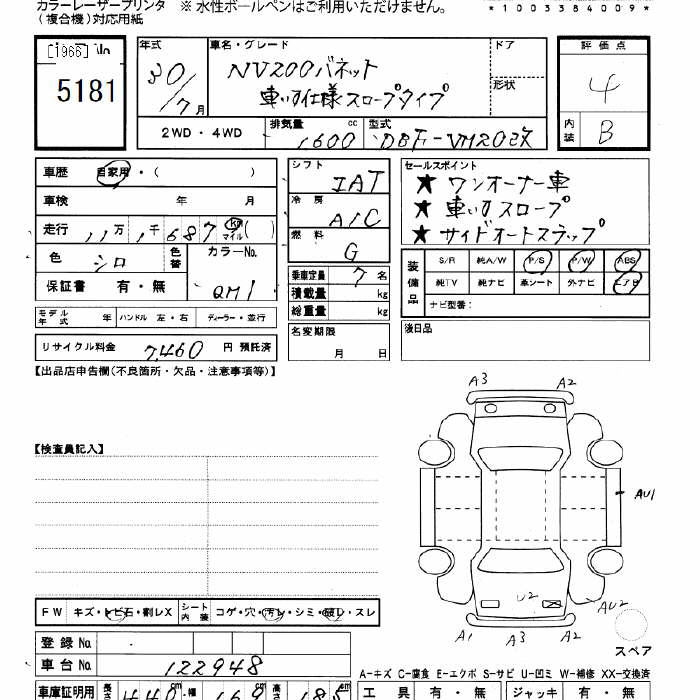 カラーレーザープリンタ ※ 水性ボールペンはご利用いただけません。
(複合機)対応用紙
*1003384009*
[1966]
5181
年式 30/7月
車名・グレード NV200バネット
車いす仕様スロープタイプ
ドア
形状
評価点 4
内装 B
2WD・4WD
排気量 1600 cc
型式 DBF-VM20改
車歴 自家用・( )
車検 年 月
走行 11万1千687 km マイル ( )
色 シロ 色替 カラーNo. QM1
保証書 有・無
モデル年式 年 ハンドル 左・右 ディーラー・並行
リサイクル料金 7,460 円 預託済
シフト IAT
冷房 A/C
燃料 G
乗車定員 7 名
積載量 kg
総重量 kg
名変期限
月 日
セールスポイント
★ ワンオーナー車
★ 車いすスロープ
★ サイドオートステップ
装備品 S/R 純A/W P/S P/W ABS
純TV 純ナビ 革シート 外ナビ エアB
ナビ型番:
後日品
【出品店申告欄(不良箇所・欠品・注意事項等)】
【検査員記入】
A3 A2
AU1
U2
AU2
A1 A3 A2
スペア
FW キズ・トビ石・割レX シート内装 コゲ・穴・汚レ・シミ・破レ・スレ
登録 No.
車台 No. 122948
A-キズ C-腐食 E-エクボ S-サビ U-凹ミ W-補修 XX-交換済
車庫証明用 長さ 440 cm 幅 169 高さ 185 cm
工具 有・無 ジャッキ 有・無